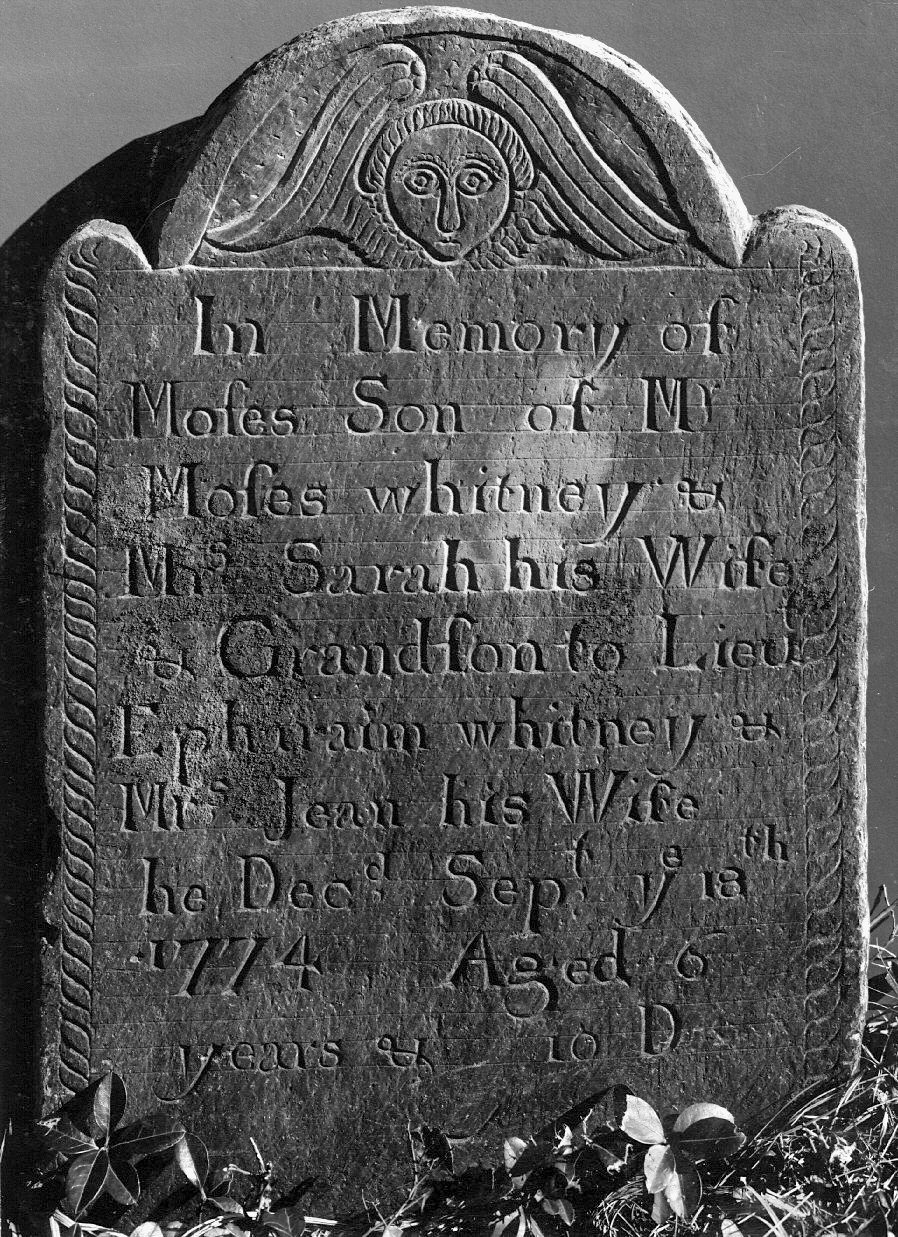 In Memory of
Moſes Son of Mr
Moſes whitney &
Mrs Sarah his Wife
& Grandſon to Lieut
Ephraim whitney &
Mrs Jean his Wife
he Decd Sept ye 18th
1774 Aged 6
years & 10 D